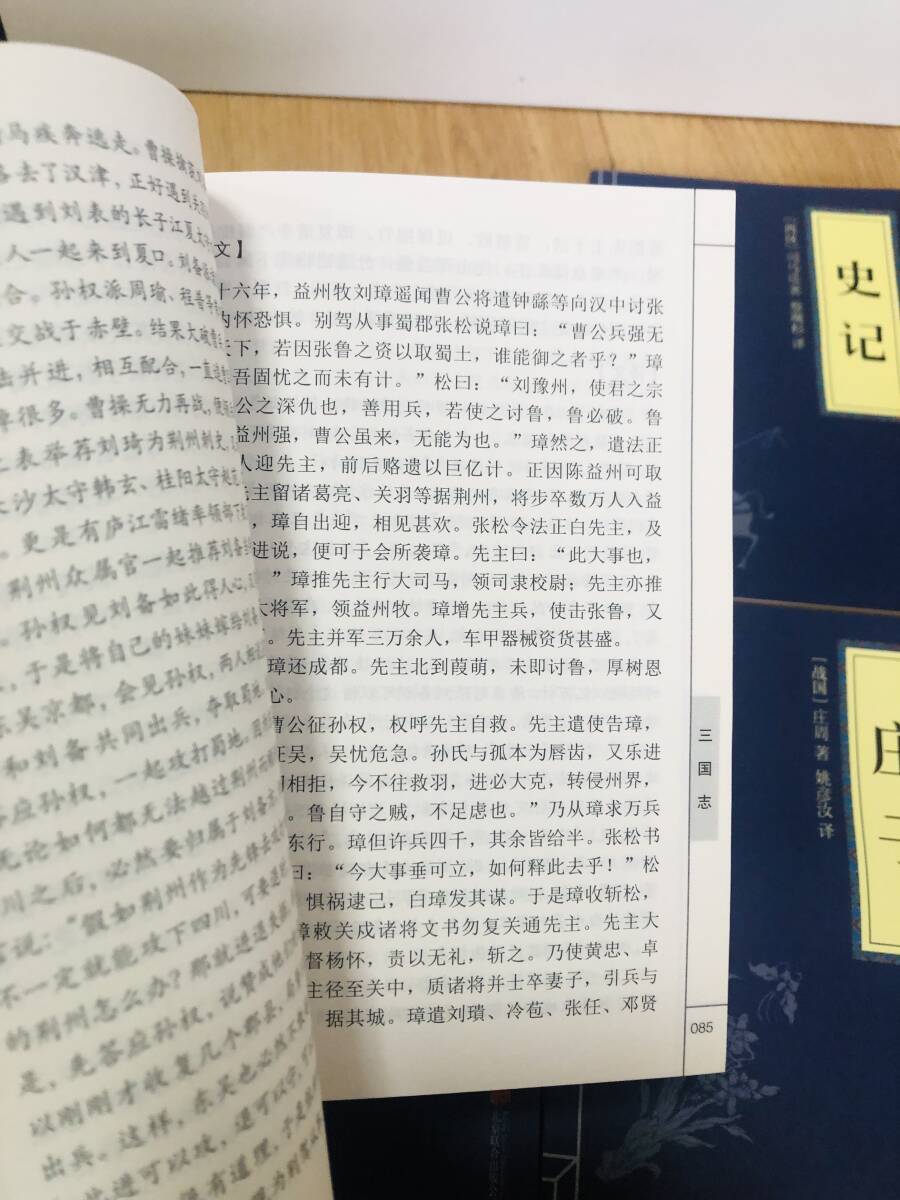 马疾奔逃走。曹操掳获
去了汉津，正好遇到关
遇到刘表的长子江夏太守
人一起来到夏口。刘备
合。孙权派周瑜、程普等
交战于赤壁。结果大破曹
击并进，相互配合，一直
很多。曹操无力再战，便
上表举荐刘琦为荆州刺史，
长沙太守韩玄、桂阳太守赵范
。更是有庐江雷绪率领部下
荆州众属官一起推荐刘备
。孙权见刘备如此得人心，
，于是将自己的妹妹嫁给刘备
东吴京都，会见孙权，两人相
和刘备共同出兵，夺取蜀地。
答应孙权，一起攻打蜀地。因
无论如何都无法越过荆州而
川之后，必然要归属于刘备
官说：“假如荆州作为先锋去
不一定就能攻下四川，可要
的荆州怎么办？那就进退
是，先答应孙权，说赞成他
以刚刚才收复几个郡县，
出兵。这样，东吴也必然不
进可以攻，退可以守，
很有道理，于是
文】
十六年，益州牧刘璋遥闻曹公将遣钟繇等向汉中讨张
内怀恐惧。别驾从事蜀郡张松说璋曰：“曹公兵强无
天下，若因张鲁之资以取蜀土，谁能御之者乎？”璋
吾固忧之而未有计。”松曰：“刘豫州，使君之宗
公之深仇也，善用兵，若使之讨鲁，鲁必破。鲁
益州强，曹公虽来，无能为也。”璋然之，遣法正
人迎先主，前后赂遗以巨亿计。正因陈益州可取
先主留诸葛亮、关羽等据荆州，将步卒数万人入益
，璋自出迎，相见甚欢。张松令法正白先主，及
进说，便可于会所袭璋。先主曰：“此大事也，
。”璋推先主行大司马，领司隶校尉；先主亦推
大将军，领益州牧。璋增先主兵，使击张鲁，又
。先主并军三万余人，车甲器械资货甚盛。
璋还成都。先主北到葭萌，未即讨鲁，厚树恩
心。
曹公征孙权，权呼先主自救。先主遣使告璋，
征吴，吴忧危急。孙氏与孤本为唇齿，又乐进
相拒，今不往救羽，进必大克，转侵州界，
。鲁自守之贼，不足虑也。”乃从璋求万兵
东行。璋但许兵四千，其余皆给半。张松书
曰：“今大事垂可立，如何释此去乎！”松
惧祸逮己，白璋发其谋。于是璋收斩松，
璋敕关戍诸将文书勿复关通先主。先主大
督杨怀，责以无礼，斩之。乃使黄忠、卓
主径至关中，质诸将并士卒妻子，引兵与
据其城。璋遣刘璝、冷苞、张任、邓贤
三国志
085
史记
译
庄
［战国］庄周 著 姚彦汝 译